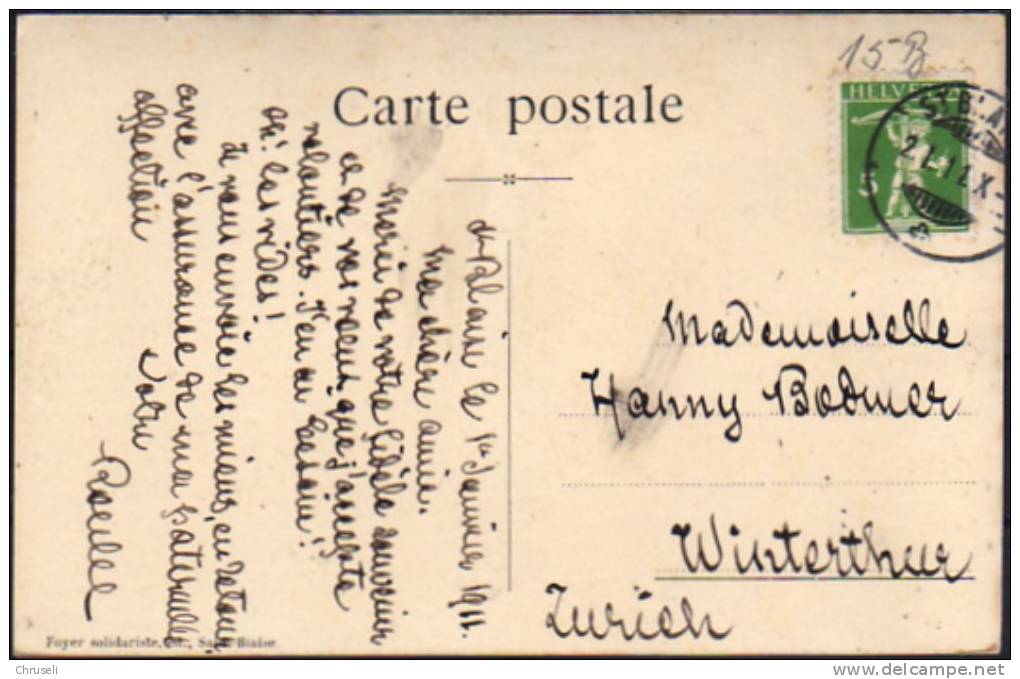 15 B
HELVETIA
ST BLAI
2.I.11.X-
Carte postale
St Blaise le 1er Janvier 1911.
Ma chère amie.
Merci de votre fidèle souvenir
et de vos voeux que j'accepte
volontiers. J'en ai besoin!
Ah! les vides!
Je vous envoie les miens, en retour,
avec l'assurance de ma paternelle
affection
Votre
Mademoiselle
Hanny Bodmer
Winterthur
Zurich
Foyer solidariste, Éd., Saint-Blaise.
Chruseli
www.delcampe.net